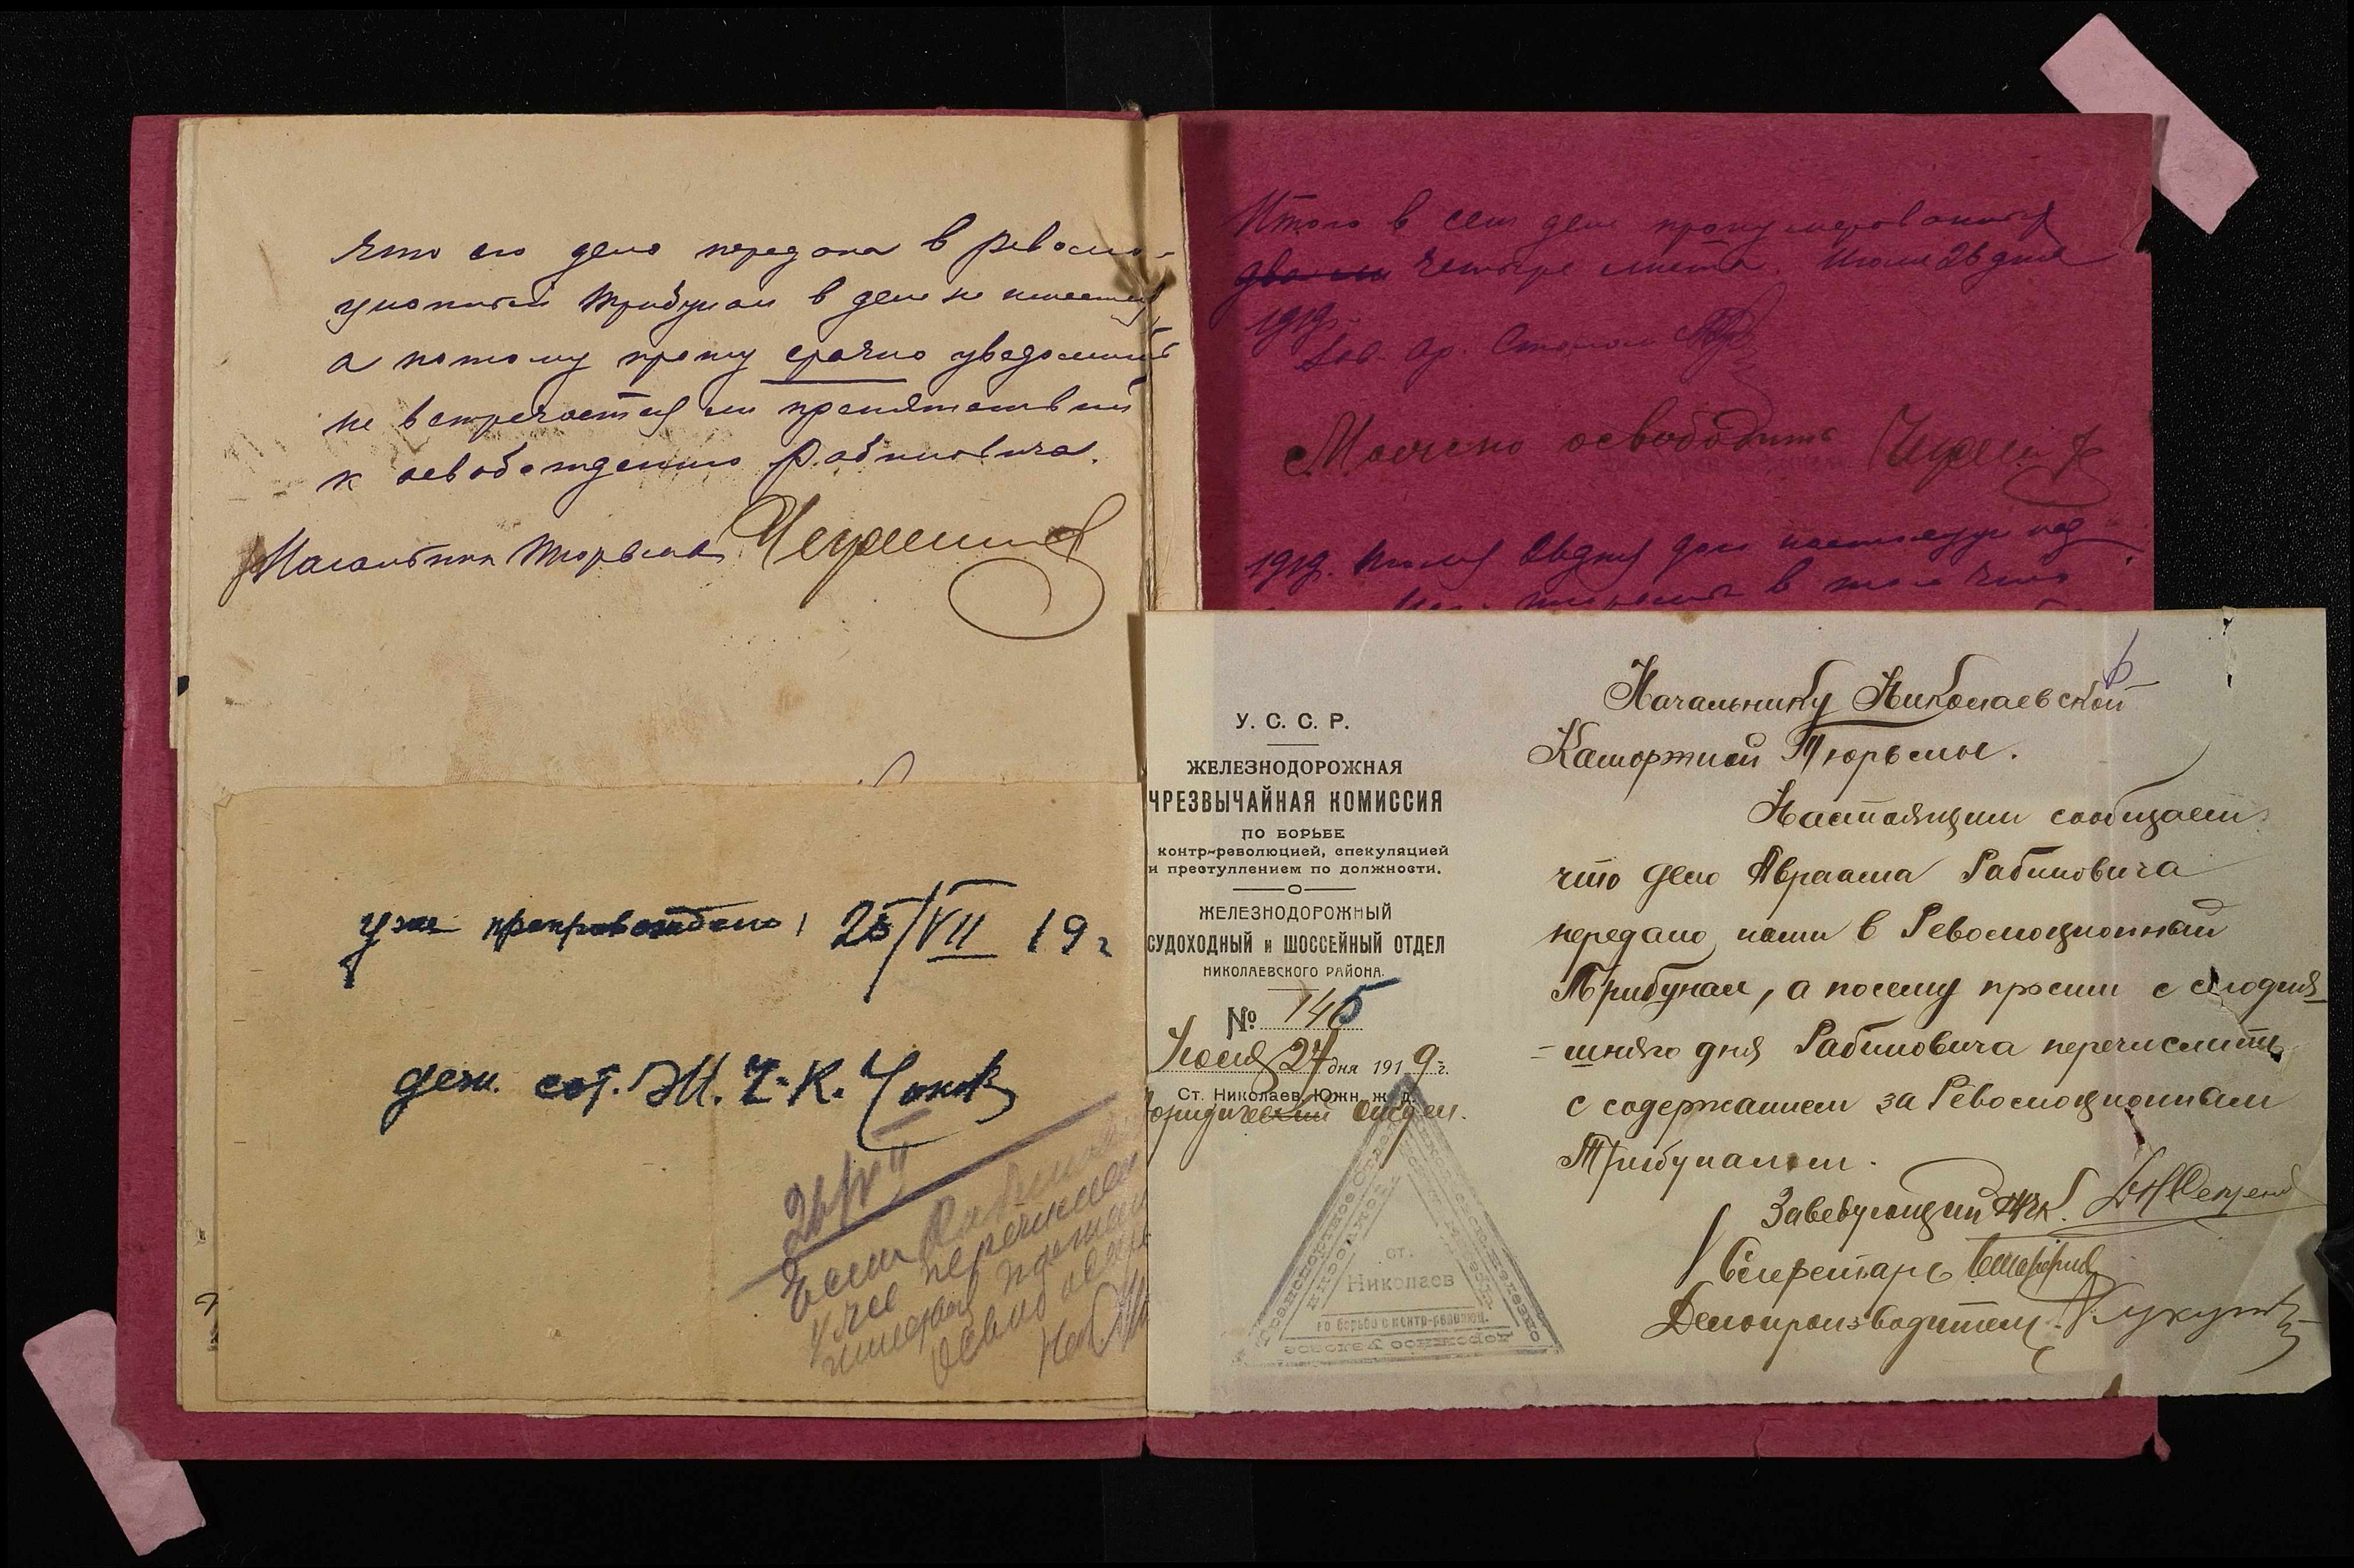 что его дело передана в Револю-
ционный трибунал в деле не имеется
а потому прошу срочно уведомить
не встречается ли препятствий
к освобождению Рабиновича.
Начальник тюрьмы
уже препровождено 25/VII 19 г
деж. сот. Ж. Ч. К.
26/VII
Если Рабинович
уже перечислен
освоб
Итого в сем деле пронумерованных
четыре листа. Июля 26 дня
1919 г.
Можно освободить
1919 г. Июля 26 дня дана настоящая под
в том что
У. С. С. Р.
ЖЕЛЕЗНОДОРОЖНАЯ
ЧРЕЗВЫЧАЙНАЯ КОМИССИЯ
ПО БОРЬБЕ
контр-революцией, спекуляцией
и преступлением по должности.
ЖЕЛЕЗНОДОРОЖНЫЙ
СУДОХОДНЫЙ и ШОССЕЙНЫЙ ОТДЕЛ
НИКОЛАЕВСКОГО РАЙОНА.
№ 145
Июля 24 дня 1919 г.
Ст. Николаев, Южн. ж. д.
Юридический отдел.
ст.
Николаев
по борьбе с контр-революц.
Начальнику Николаевской
Каторжной Тюрьмы.
Настоящим сообщаем
что дело Авраама Рабиновича
передано нами в Революционный
Трибунал, а посему просим с сегодня-
=шняго дня Рабиновича перечислить
с содержанием за Революционным
Трибуналом.
Заведующий ЖЧК.
Секретарь
Делопроизводитель